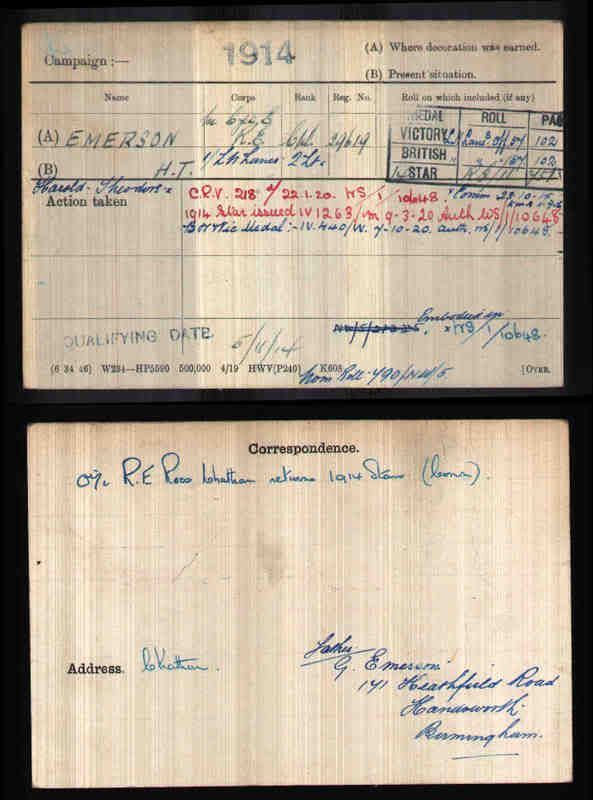 Campaign :— 1914
(A) Where decoration was earned.
(B) Present situation.
Name Corps Rank Reg. No. Roll on which included (if any)
MEDAL ROLL PAGE
(A) EMERSON R.E. Cpl 29619
VICTORY Off 102
BRITISH " 102
(B) H.T. 2/Lt.
STAR
Harold Theodore
Action taken
C.R.V. 218 22.1.20. WS/1/10648.
1914 Star issued IV 1263/m 9-3-20 Auth WS/1/10648
Medal:- IV.440/W. 7-10-20. auth. WS/1/10648.
Emblems
QUALIFYING DATE 5/11/14 WS/1/10648.
(6 34 46) W234—HP5590 500,000 4/19 HWV(P240) K608 [OVER.
from Roll
Correspondence.
O/c R.E. Rcds Chatham returns 1914 Stars
Address. Chatham.
Father
G. Emerson
171 Heathfield Road
Handsworth
Birmingham.